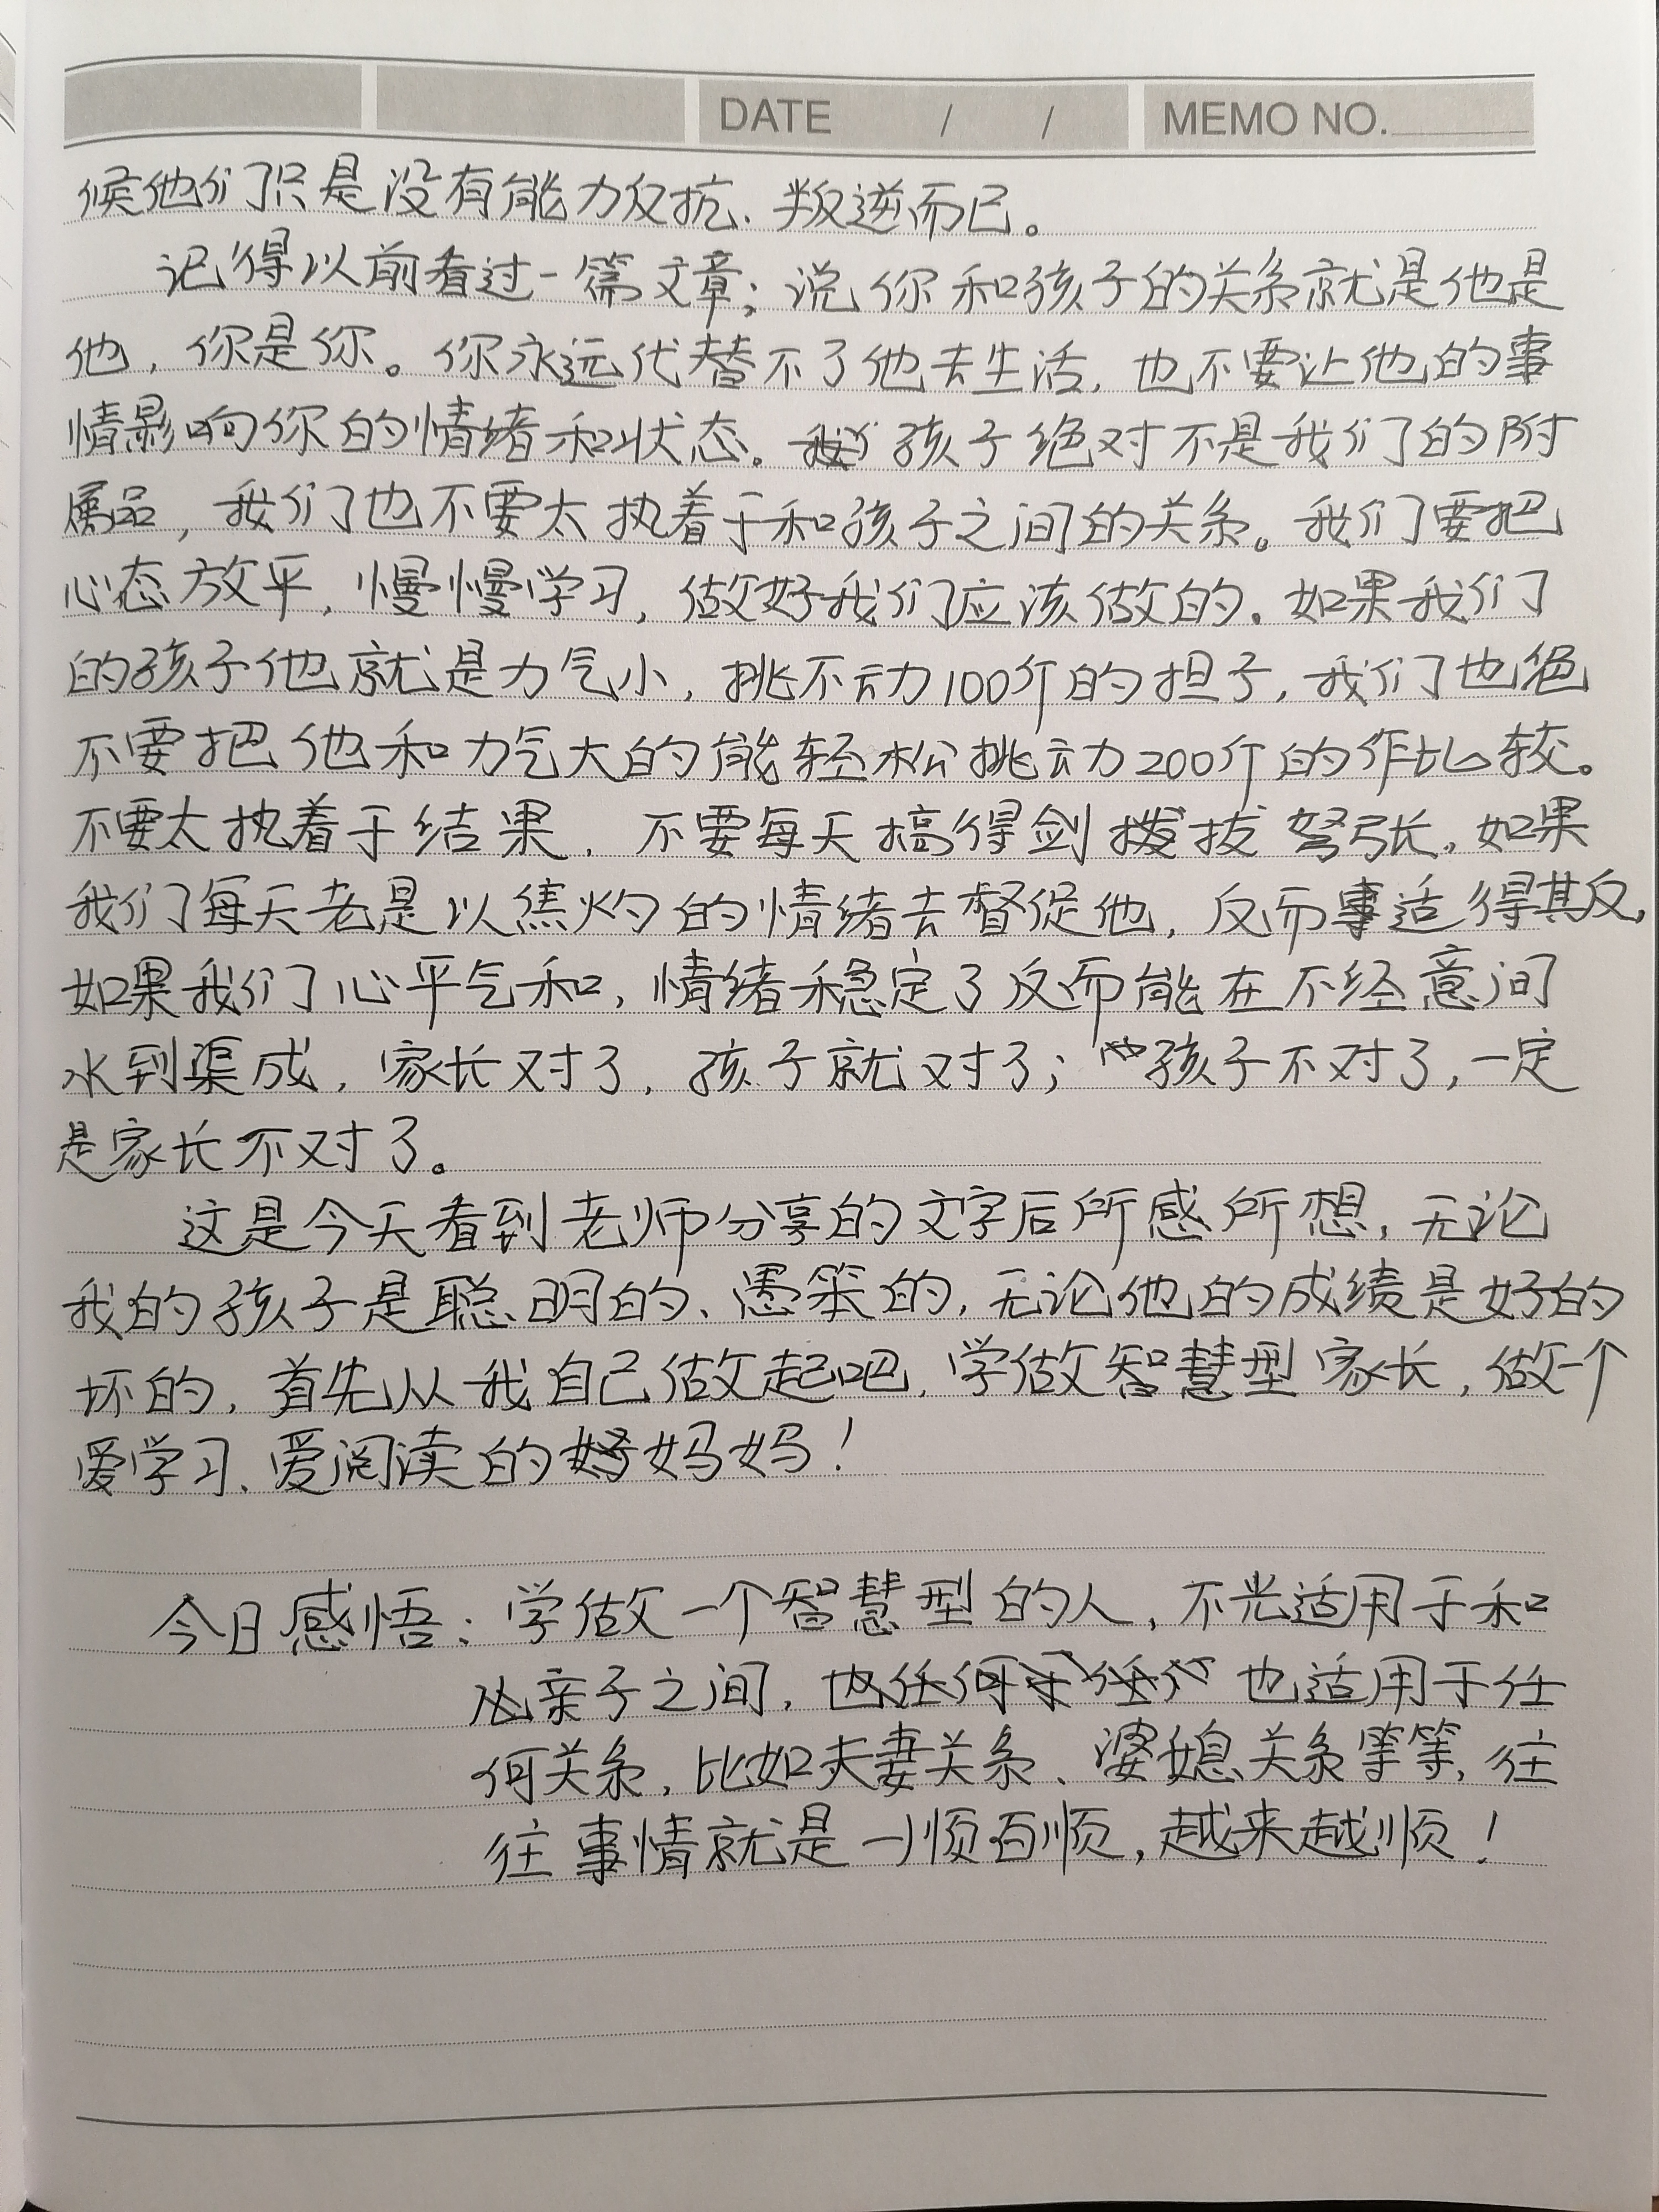 DATE / / MEMO NO.
候他们只是没有能力反抗、叛逆而已。
记得以前看过一篇文章;说你和孩子的关系就是他是
他,你是你。你永远代替不了他去生活,也不要让他的事
情影响你的情绪和状态。孩子绝对不是我们的附
属品,我们也不要太执着于和孩子之间的关系。我们要把
心态放平,慢慢学习,做好我们应该做的。如果我们
的孩子他就是力气小,挑不动100斤的担子,我们也绝
不要把他和力气大的能轻松挑动200斤的作比较。
不要太执着于结果,不要每天搞得剑拔弩张,如果
我们每天老是以焦灼的情绪去督促他,反而事适得其反,
如果我们心平气和,情绪稳定了反而能在不经意间
水到渠成,家长对了,孩子就对了;孩子不对了,一定
是家长不对了。
这是今天看到老师分享的文字后所感所想,无论
我的孩子是聪明的、愚笨的,无论他的成绩是好的
坏的,首先从我自己做起吧,学做智慧型家长,做一个
爱学习、爱阅读的好妈妈!
今日感悟:学做一个智慧型的人,不光适用于和
亲子之间,也适用于任
何关系,比如夫妻关系、婆媳关系等等,往
往事情就是一顺百顺,越来越顺!